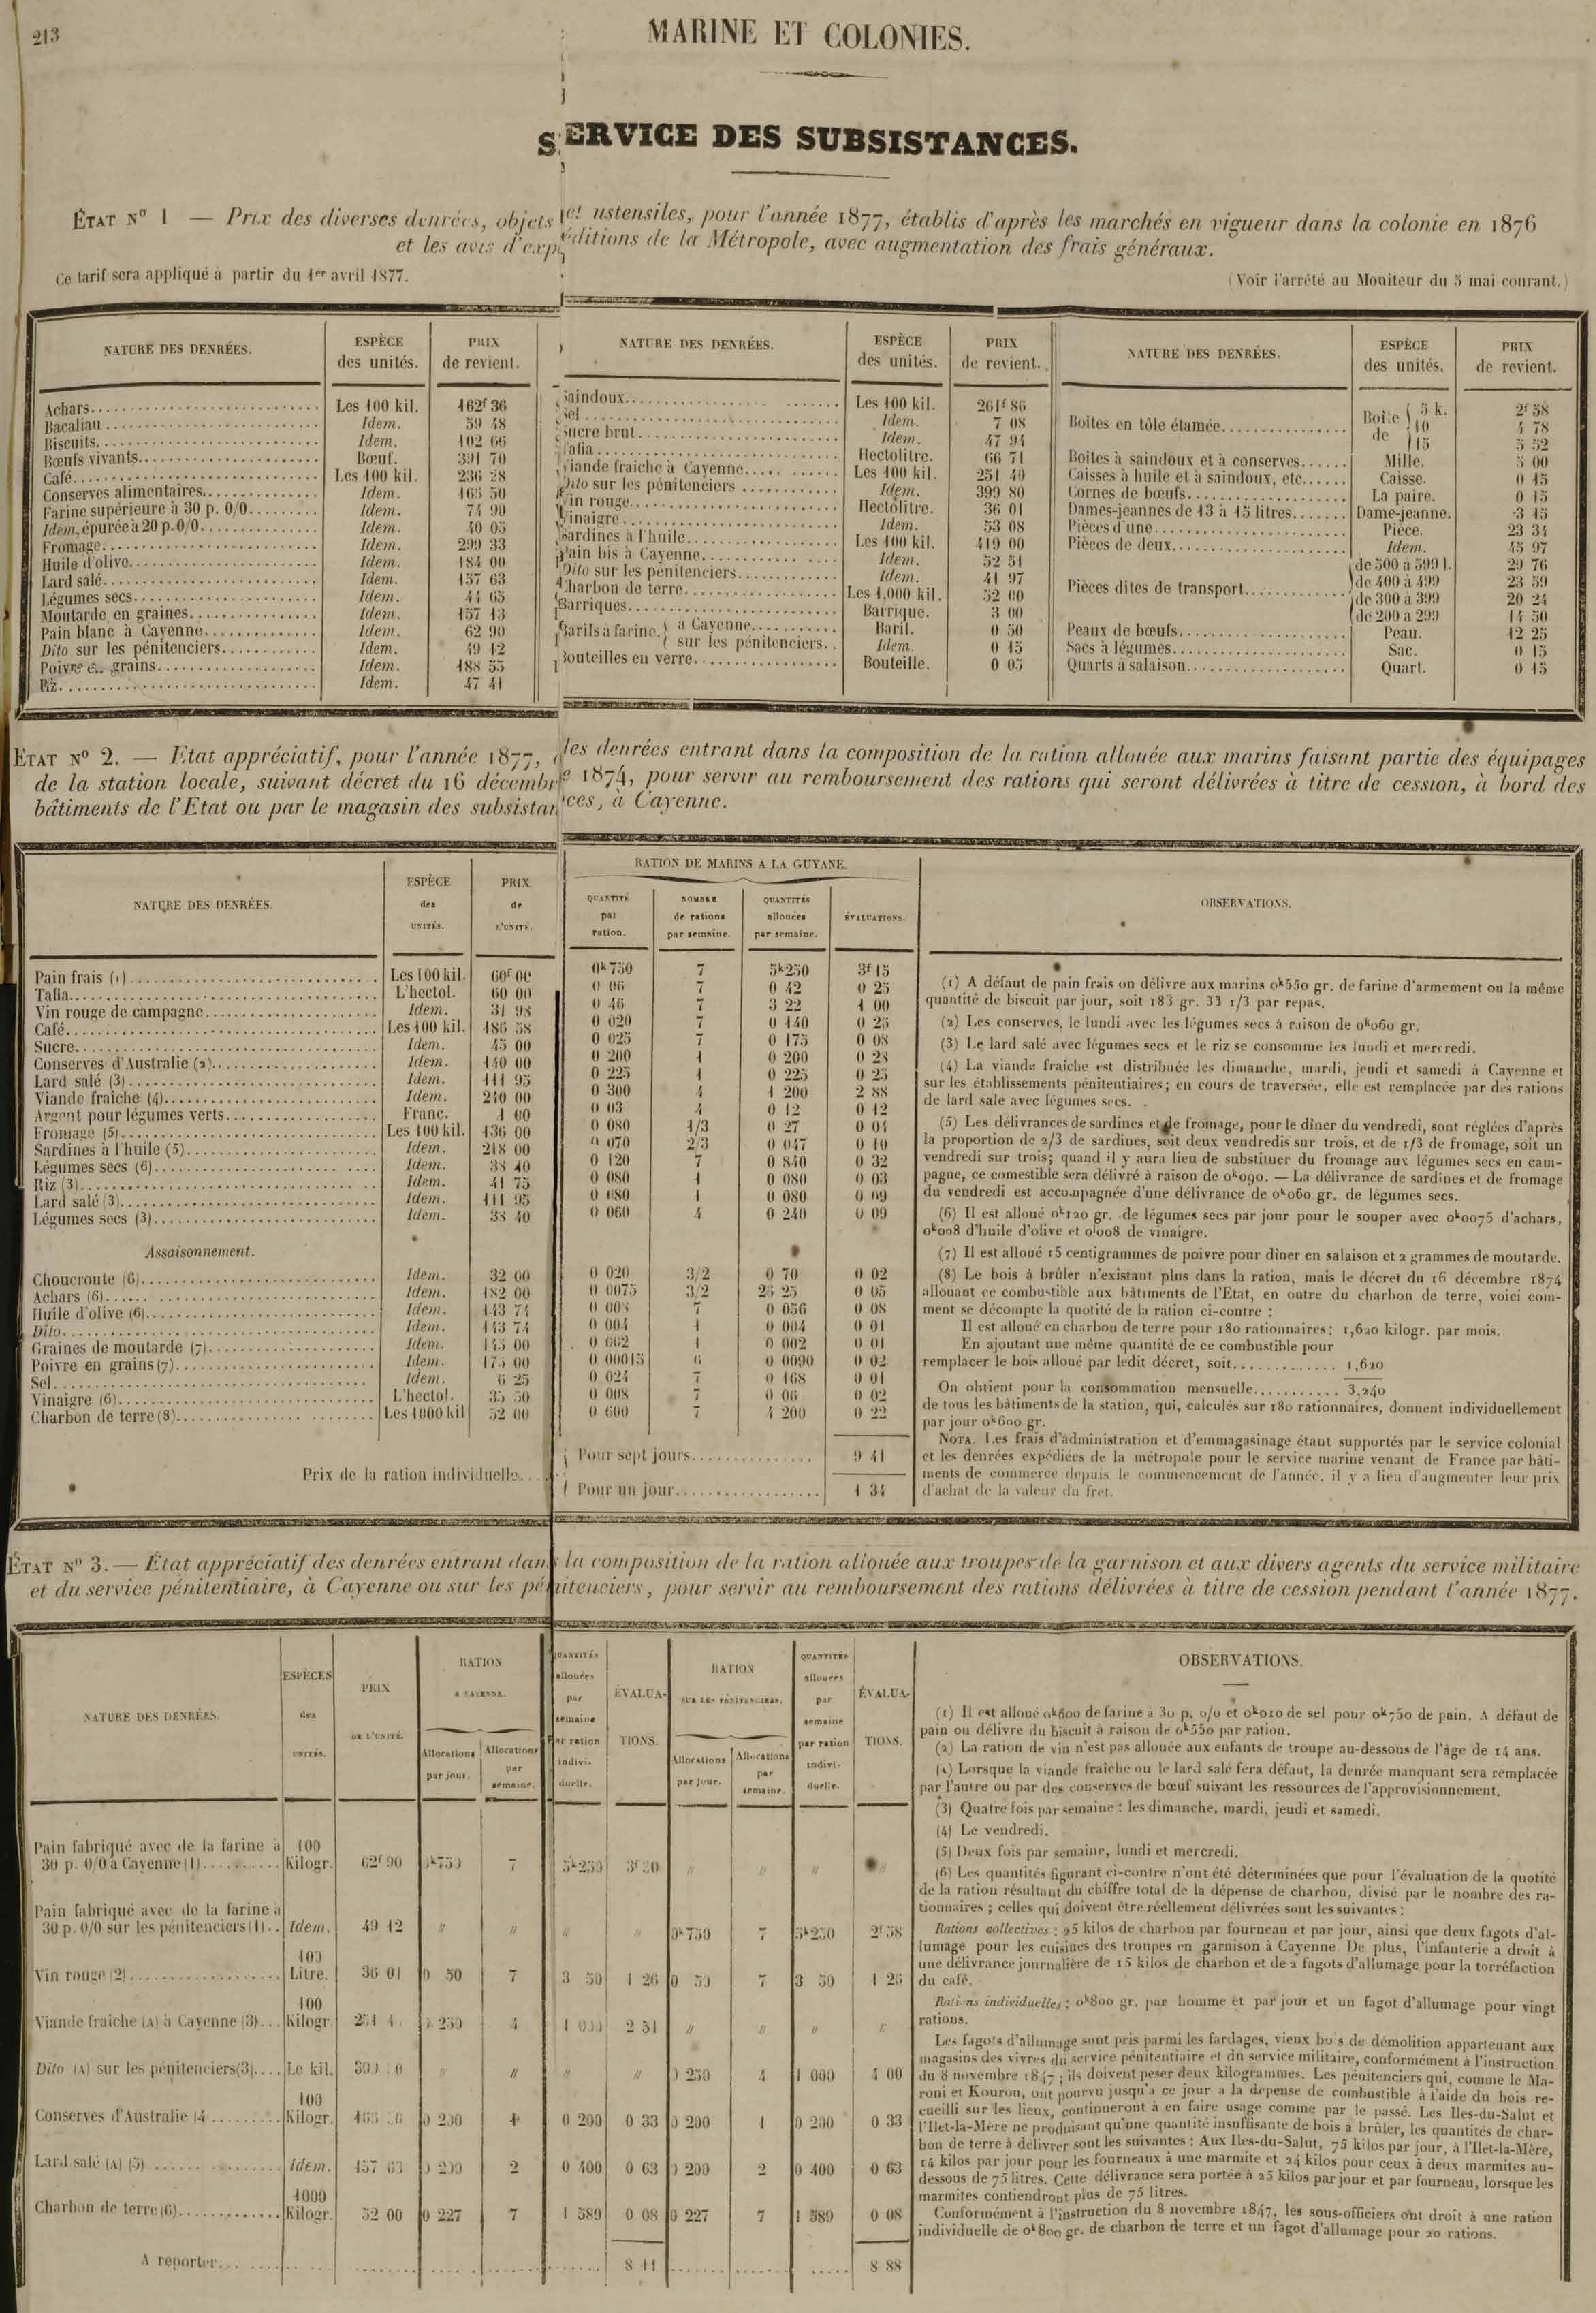 213
MARINE ET COLONIES.
SERVICE DES SUBSISTANCES.
ÉTAT Nº 1 — Prix des diverses denrées, objets et ustensiles, pour l'année 1877, établis d'après les marchés en vigueur dans la colonie en 1876
et les avis d'expéditions de la Métropole, avec augmentation des frais généraux.
Ce tarif sera appliqué à partir du 1er avril 1877.
(Voir l'arrêté au Moniteur du 5 mai courant.)
NATURE DES DENRÉES. ESPÈCE des unités. PRIX de revient.
Achars Les 100 kil. 162f 36
Bacaliau Idem. 59 48
Biscuits Idem. 102 66
Bœufs vivants Bœuf. 391 70
Café Les 100 kil. 236 28
Conserves alimentaires Idem. 165 50
Farine supérieure à 30 p. 0/0 Idem. 74 90
Idem, épurée à 20 p. 0/0 Idem. 40 05
Fromage Idem. 299 33
Huile d'olive Idem. 184 00
Lard salé Idem. 157 63
Légumes secs Idem. 44 65
Moutarde en graines Idem. 157 13
Pain blanc à Cayenne Idem. 62 90
Dito sur les pénitenciers Idem. 49 12
Poivre en grains Idem. 188 55
Riz Idem. 47 41
NATURE DES DENRÉES. ESPÈCE des unités. PRIX de revient.
Saindoux Les 100 kil. 261f 86
Sel Idem. 7 08
Sucre brut Idem. 47 94
Tafia Hectolitre. 66 71
Viande fraîche à Cayenne Les 100 kil. 251 40
Dito sur les pénitenciers Idem. 399 80
Vin rouge Hectolitre. 36 01
Vinaigre Idem. 53 08
Sardines à l'huile Les 100 kil. 419 00
Pain bis à Cayenne Idem. 52 51
Dito sur les pénitenciers Idem. 41 97
Charbon de terre Les 1,000 kil. 52 00
Barriques Barrique. 3 00
Barils à farine. { à Cayenne Baril. 0 50
sur les pénitenciers Idem. 0 15
Bouteilles en verre Bouteille. 0 05
NATURE DES DENRÉES. ESPÈCE des unités. PRIX de revient.
Boites en tôle étamée Boîte de { 5 k. 2f 58
10 4 78
15 5 52
Boites à saindoux et à conserves Mille. 5 00
Caisses à huile et à saindoux, etc. Caisse. 0 15
Cornes de bœufs La paire. 0 15
Dames-jeannes de 13 à 15 litres Dame-jeanne. 3 15
Pièces d'une Pièce. 23 34
Pièces de deux Idem. 45 97
Pièces dites de transport { de 500 à 599 l. 29 76
de 400 à 499 23 59
de 300 à 399 20 24
de 200 à 299 14 50
Peaux de bœufs Peau. 12 25
Sacs à légumes Sac. 0 15
Quarts à salaison Quart. 0 15
ÉTAT Nº 2. — Etat appréciatif, pour l'année 1877, des denrées entrant dans la composition de la ration allouée aux marins faisant partie des équipages
de la station locale, suivant décret du 16 décembre 1874, pour servir au remboursement des rations qui seront délivrées à titre de cession, à bord des
bâtiments de l'Etat ou par le magasin des subsistances, à Cayenne.
NATURE DES DENRÉES. ESPÈCE des UNITÉS. PRIX de L'UNITÉ. RATION DE MARINS A LA GUYANE. QUANTITÉ par ration. NOMBRE de rations par semaine. QUANTITÉS allouées par semaine. ÉVALUATIONS. OBSERVATIONS.
Pain frais (1) Les 100 kil. 60f 00 0k 750 7 5k 250 3f 15
Tafia L'hectol. 60 00 0 06 7 0 42 0 25
Vin rouge de campagne Idem. 31 98 0 46 7 3 22 1 00
Café Les 100 kil. 186 58 0 020 7 0 140 0 26
Sucre Idem. 45 00 0 025 7 0 175 0 08
Conserves d'Australie (2) Idem. 140 00 0 200 1 0 200 0 28
Lard salé (3) Idem. 111 95 0 225 1 0 225 0 25
Viande fraîche (4) Idem. 240 00 0 300 4 1 200 2 88
Argent pour légumes verts Franc. 1 00 0 03 4 0 12 0 12
Fromage (5) Les 100 kil. 136 00 0 080 1/3 0 27 0 04
Sardines à l'huile (5) Idem. 218 00 0 070 2/3 0 047 0 10
Légumes secs (6) Idem. 38 40 0 120 7 0 840 0 32
Riz (3) Idem. 41 75 0 080 1 0 080 0 03
Lard salé (3) Idem. 111 95 0 080 1 0 080 0 09
Légumes secs (3) Idem. 38 40 0 060 4 0 240 0 09
Assaisonnement.
Choucroute (6) Idem. 32 00 0 020 3/2 0 70 0 02
Achars (6) Idem. 182 00 0 0075 3/2 26 25 0 05
Huile d'olive (6) Idem. 143 74 0 008 7 0 056 0 08
Dito Idem. 143 74 0 004 1 0 004 0 01
Graines de moutarde (7) Idem. 145 00 0 002 1 0 002 0 01
Poivre en grains (7) Idem. 175 00 0 00015 6 0 0090 0 02
Sel Idem. 6 25 0 024 7 0 168 0 01
Vinaigre (6) L'hectol. 35 50 0 008 7 0 06 0 02
Charbon de terre (8) Les 1000 kil 52 00 0 600 7 4 200 0 22
Prix de la ration individuelle { Pour sept jours 9 41
Pour un jour 1 34
(1) A défaut de pain frais on délivre aux marins 0k550 gr. de farine d'armement ou la même
quantité de biscuit par jour, soit 183 gr. 33 1/3 par repas.
(2) Les conserves, le lundi avec les légumes secs à raison de 0k060 gr.
(3) Le lard salé avec légumes secs et le riz se consomme les lundi et mercredi.
(4) La viande fraîche est distribuée les dimanche, mardi, jeudi et samedi à Cayenne et
sur les établissements pénitentiaires; en cours de traversée, elle est remplacée par des rations
de lard salé avec légumes secs.
(5) Les délivrances de sardines et de fromage, pour le dîner du vendredi, sont réglées d'après
la proportion de 2/3 de sardines, soit deux vendredis sur trois, et de 1/3 de fromage, soit un
vendredi sur trois; quand il y aura lieu de substituer du fromage aux légumes secs en cam-
pagne, ce comestible sera délivré à raison de 0k090. — La délivrance de sardines et de fromage
du vendredi est accompagnée d'une délivrance de 0k060 gr. de légumes secs.
(6) Il est alloué 0k120 gr. de légumes secs par jour pour le souper avec 0k0075 d'achars,
0k008 d'huile d'olive et 0l008 de vinaigre.
(7) Il est alloué 15 centigrammes de poivre pour dîner en salaison et 2 grammes de moutarde.
(8) Le bois à brûler n'existant plus dans la ration, mais le décret du 16 décembre 1874
allouant ce combustible aux bâtiments de l'Etat, en outre du charbon de terre, voici com-
ment se décompte la quotité de la ration ci-contre :
Il est alloué en charbon de terre pour 180 rationnaires: 1,620 kilogr. par mois.
En ajoutant une même quantité de ce combustible pour
remplacer le bois alloué par ledit décret, soit 1,620
On obtient pour la consommation mensuelle 3,240
de tous les bâtiments de la station, qui, calculés sur 180 rationnaires, donnent individuellement
par jour 0k600 gr.
NOTA. Les frais d'administration et d'emmagasinage étant supportés par le service colonial
et les denrées expédiées de la métropole pour le service marine venant de France par bâti-
ments de commerce depuis le commencement de l'année, il y a lieu d'augmenter leur prix
d'achat de la valeur du fret.
ÉTAT Nº 3. — État appréciatif des denrées entrant dans la composition de la ration allouée aux troupes de la garnison et aux divers agents du service militaire
et du service pénitentiaire, à Cayenne ou sur les pénitenciers, pour servir au remboursement des rations délivrées à titre de cession pendant l'année 1877.
NATURE DES DENRÉES. ESPÈCES des UNITÉS. PRIX DE L'UNITÉ. RATION A CAYENNE. Allocations par jour. Allocations par semaine. QUANTITÉS allouées par semaine par ration indivi- duelle. ÉVALUA- TIONS. RATION SUR LES PÉNITENCIERS. Allocations par jour. Allocations par semaine. QUANTITÉS allouées par semaine par ration indivi- duelle. ÉVALUA- TIONS. OBSERVATIONS.
Pain fabriqué avec de la farine à 100
30 p. 0/0 à Cayenne (1) Kilogr. 62f 90 0k750 7 5k250 3f30 // // // //
Pain fabriqué avec de la farine à
30 p. 0/0 sur les pénitenciers (1) Idem. 49 12 // // // // 0k750 7 5k250 2f58
Vin rouge (2) 100 Litre. 36 01 0 50 7 3 50 1 26 0 50 7 3 50 1 26
Viande fraîche (A) à Cayenne (3) 100 Kilogr. 251 4 0 250 4 1 000 2 51 // // // //
Dito (A) sur les pénitenciers (3) Le kil. // // // // 0 250 4 1 000 4 00
Conserves d'Australie (4 100 Kilogr. 0 200 1 0 200 0 33 0 200 1 0 200 0 33
Lard salé (A) (5) Idem. 157 63 0 200 2 0 400 0 63 0 200 2 0 400 0 63
Charbon de terre (6) 1000 Kilogr. 52 00 0 227 7 1 589 0 08 0 227 7 1 589 0 08
A reporter 8 11 8 88
(1) Il est alloué 0k600 de farine à 30 p. 0/0 et 0k010 de sel pour 0k750 de pain. A défaut de
pain on délivre du biscuit à raison de 0k550 par ration.
(2) La ration de vin n'est pas allouée aux enfants de troupe au-dessous de l'âge de 14 ans.
(A) Lorsque la viande fraîche ou le lard salé fera défaut, la denrée manquant sera remplacée
par l'autre ou par des conserves de bœuf suivant les ressources de l'approvisionnement.
(3) Quatre fois par semaine : les dimanche, mardi, jeudi et samedi.
(4) Le vendredi.
(5) Deux fois par semaine, lundi et mercredi.
(6) Les quantités figurant ci-contre n'ont été déterminées que pour l'évaluation de la quotité
de la ration résultant du chiffre total de la dépense de charbon, divisé par le nombre des ra-
tionnaires ; celles qui doivent être réellement délivrées sont les suivantes :
Rations collectives : 25 kilos de charbon par fourneau et par jour, ainsi que deux fagots d'al-
lumage pour les cuisines des troupes en garnison à Cayenne. De plus, l'infanterie a droit à
une délivrance journalière de 15 kilos de charbon et de 2 fagots d'allumage pour la torréfaction
du café.
Rations individuelles : 0k800 gr. par homme et par jour et un fagot d'allumage pour vingt
rations.
Les fagots d'allumage sont pris parmi les fardages, vieux bois de démolition appartenant aux
magasins des vivres du service pénitentiaire et du service militaire, conformément à l'instruction
du 8 novembre 1847 ; ils doivent peser deux kilogrammes. Les pénitenciers qui, comme le Ma-
roni et Kourou, ont pourvu jusqu'à ce jour à la dépense de combustible à l'aide du bois re-
cueilli sur les lieux, continueront à en faire usage comme par le passé. Les Iles-du-Salut et
l'Ilet-la-Mère ne produisant qu'une quantité insuffisante de bois à brûler, les quantités de char-
bon de terre à délivrer sont les suivantes : Aux Iles-du-Salut, 75 kilos par jour, à l'Ilet-la-Mère,
14 kilos par jour pour les fourneaux à une marmite et 24 kilos pour ceux à deux marmites au-
dessous de 75 litres. Cette délivrance sera portée à 25 kilos par jour et par fourneau, lorsque les
marmites contiendront plus de 75 litres.
Conformément à l'instruction du 8 novembre 1847, les sous-officiers ont droit à une ration
individuelle de 0k800 gr. de charbon de terre et un fagot d'allumage pour 20 rations.